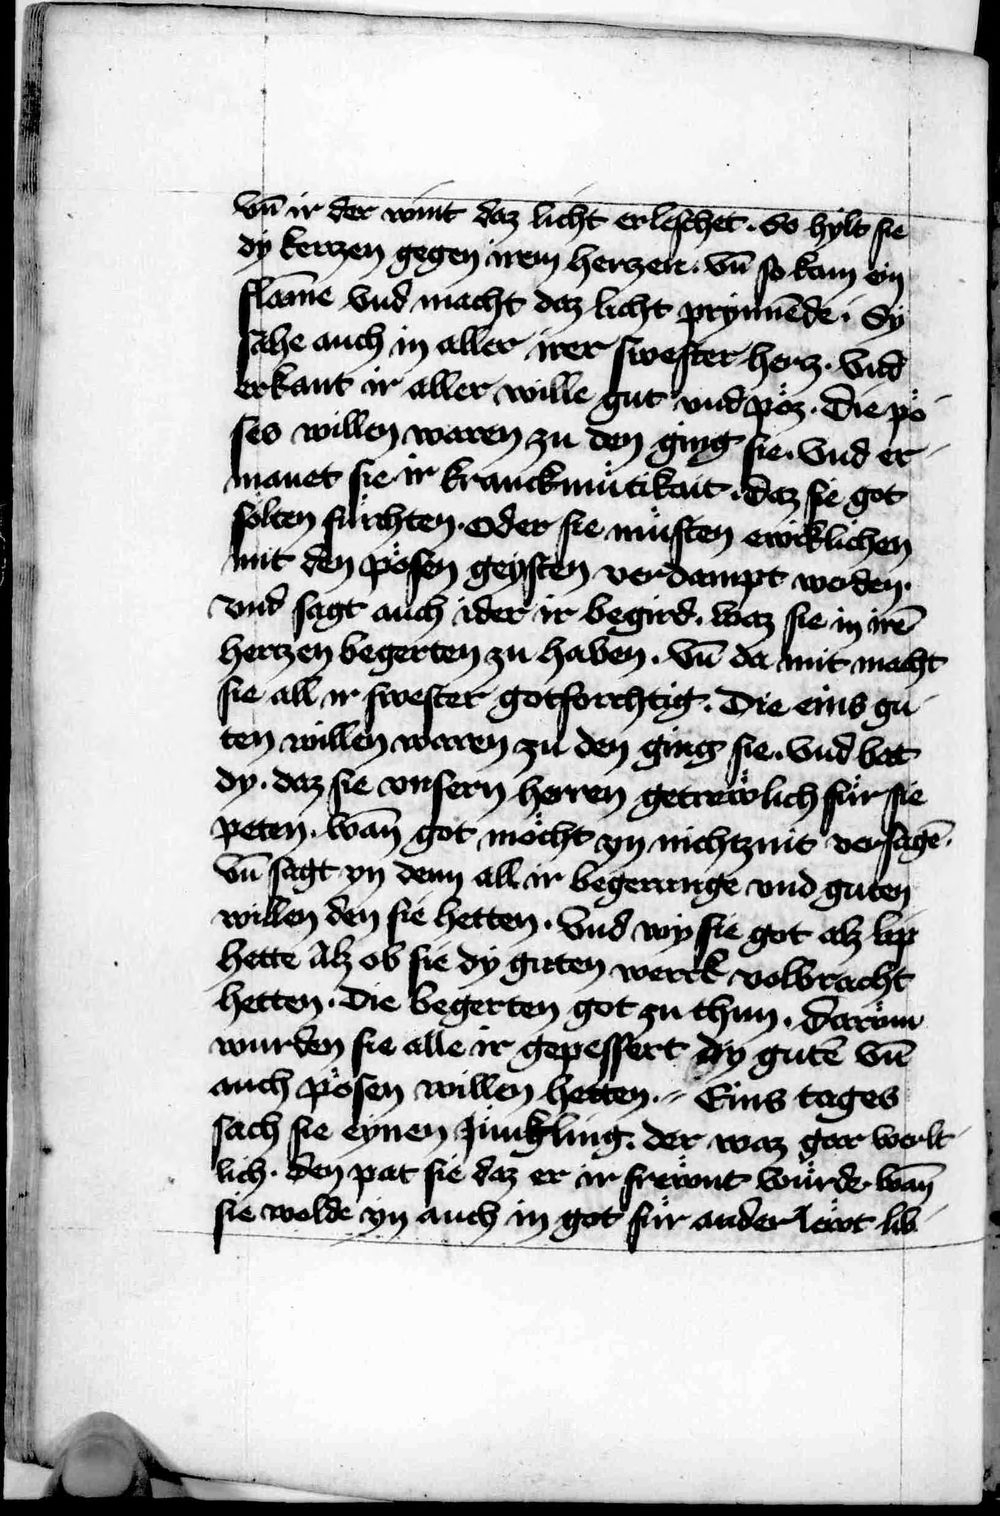 vn̄ ir der wint daz licht erleschet. So hylt sie
dy kerczen gegen irem herczen. vn̄ so kam ein
flam̄e vnd macht daz licht prynnēde. Sy
sahe auch in aller irer swester hercz. vnd
erkant ir aller wille gut vnd pöz. Die pö
ses willen waren zu den ging sie. vnd er
manet sie ir kranckmütikait. daz sie got
sölten fürchten. oder sie müsten ewicklichen
mit den pösen geysten verdampt werden.
vnd sagt auch ider ir begird. waz sie in irē
herczen begerten zu haben. vn̄ da mit macht
sie all ir swester gotforchtig. Die eins gu
ten willen waren zu den ging sie. vnd bat
dy. daz sie vnsern herren getrewlich für sie
peten. wan̄ got möcht yn nichtznit versagē.
vn̄ sagt yn denn all ir begerunge vnd guten
willen den sie hetten. vnd wy sie got alz lip
hette Alz ob sie dy guten werck volbracht
hetten. Die begerten got zu thun. Darüm
wurden sie alle ir gepessert dy gutē vn̄
auch pösen willen hetten. Eins tages
sach sie eynen Jüngling. der waz gar werlt
lich. den pat sie daz er ir frewnt würde wan̄
sie wolde yn auch in got für ander lewt lib